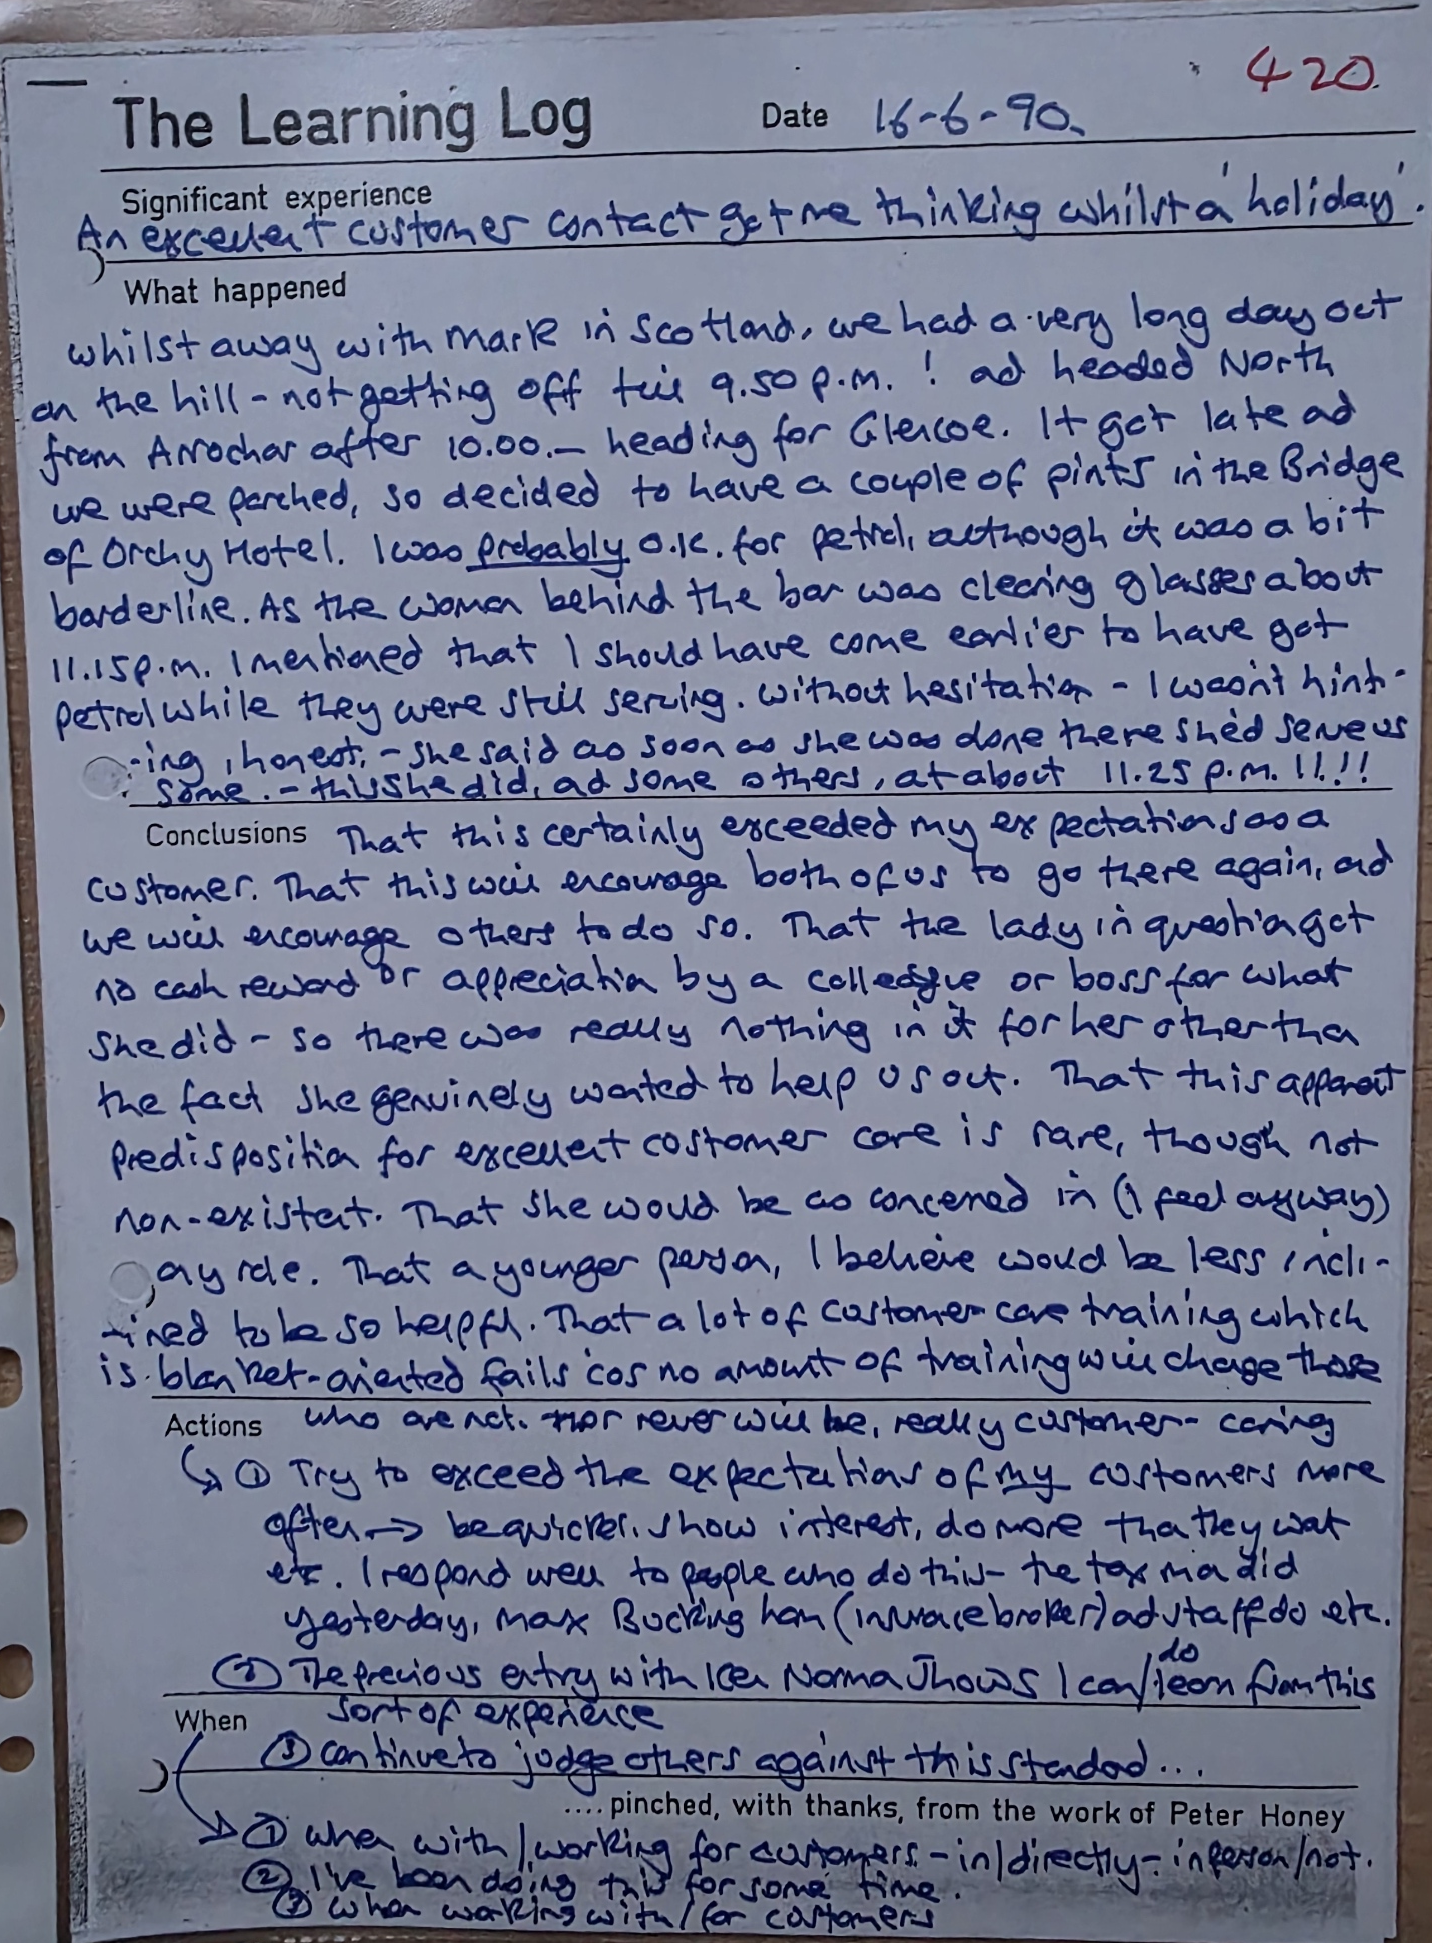 420.
The Learning Log Date 16-6-90.
Significant experience
An excellent customer contact got me thinking whilst a 'holiday'.
What happened
whilst away with Mark in Scotland, we had a very long day out
on the hill - not getting off till 9.50 p.m. ! ad headed North
from Arrochar after 10.00. - heading for Glencoe. It got late ad
we were parched, so decided to have a couple of pints in the Bridge
of Orchy Hotel. I was probably O.K. for petrol, although it was a bit
borderline. As the woman behind the bar was clearing glasses about
11.15p.m. I mentioned that I should have come earlier to have got
petrol while they were still serving. Without hesitation - I wasn't hint-
-ing, honest, - she said as soon as she was done there she'd serve us
some. - this she did, ad some others, at about 11.25 p.m. !!.!!
Conclusions That this certainly exceeded my expectations as a
customer. That this will encourage both of us to go there again, ad
we will encourage others to do so. That the lady in question got
no cash reward or appreciation by a colleague or boss for what
she did - so there was really nothing in it for her other than
the fact she genuinely wanted to help us out. That this apparent
predisposition for excellent customer care is rare, though not
non-existent. That she would be as concerned in (I feel anyway)
any role. That a younger person, I believe would be less incli-
-ined to be so helpful. That a lot of customer care training which
is blanket-oriented fails 'cos no amount of training will change those
Actions who are not. nor never will be, really customer-caring
① Try to exceed the expectations of my customers more
often → be quicker, show interest, do more than they want
etc. I respond well to people who do this - the tax man did
yesterday, Max Buckingham (insurance broker) ad staff do etc.
② The previous entry with Ken Norma shows I can/do learn from this
When sort of experience
③ continue to judge others against this standard...
....pinched, with thanks, from the work of Peter Honey
① when with/working for customers - in/directly - in person/not.
② I've been doing this for some time.
③ when working with/for customers